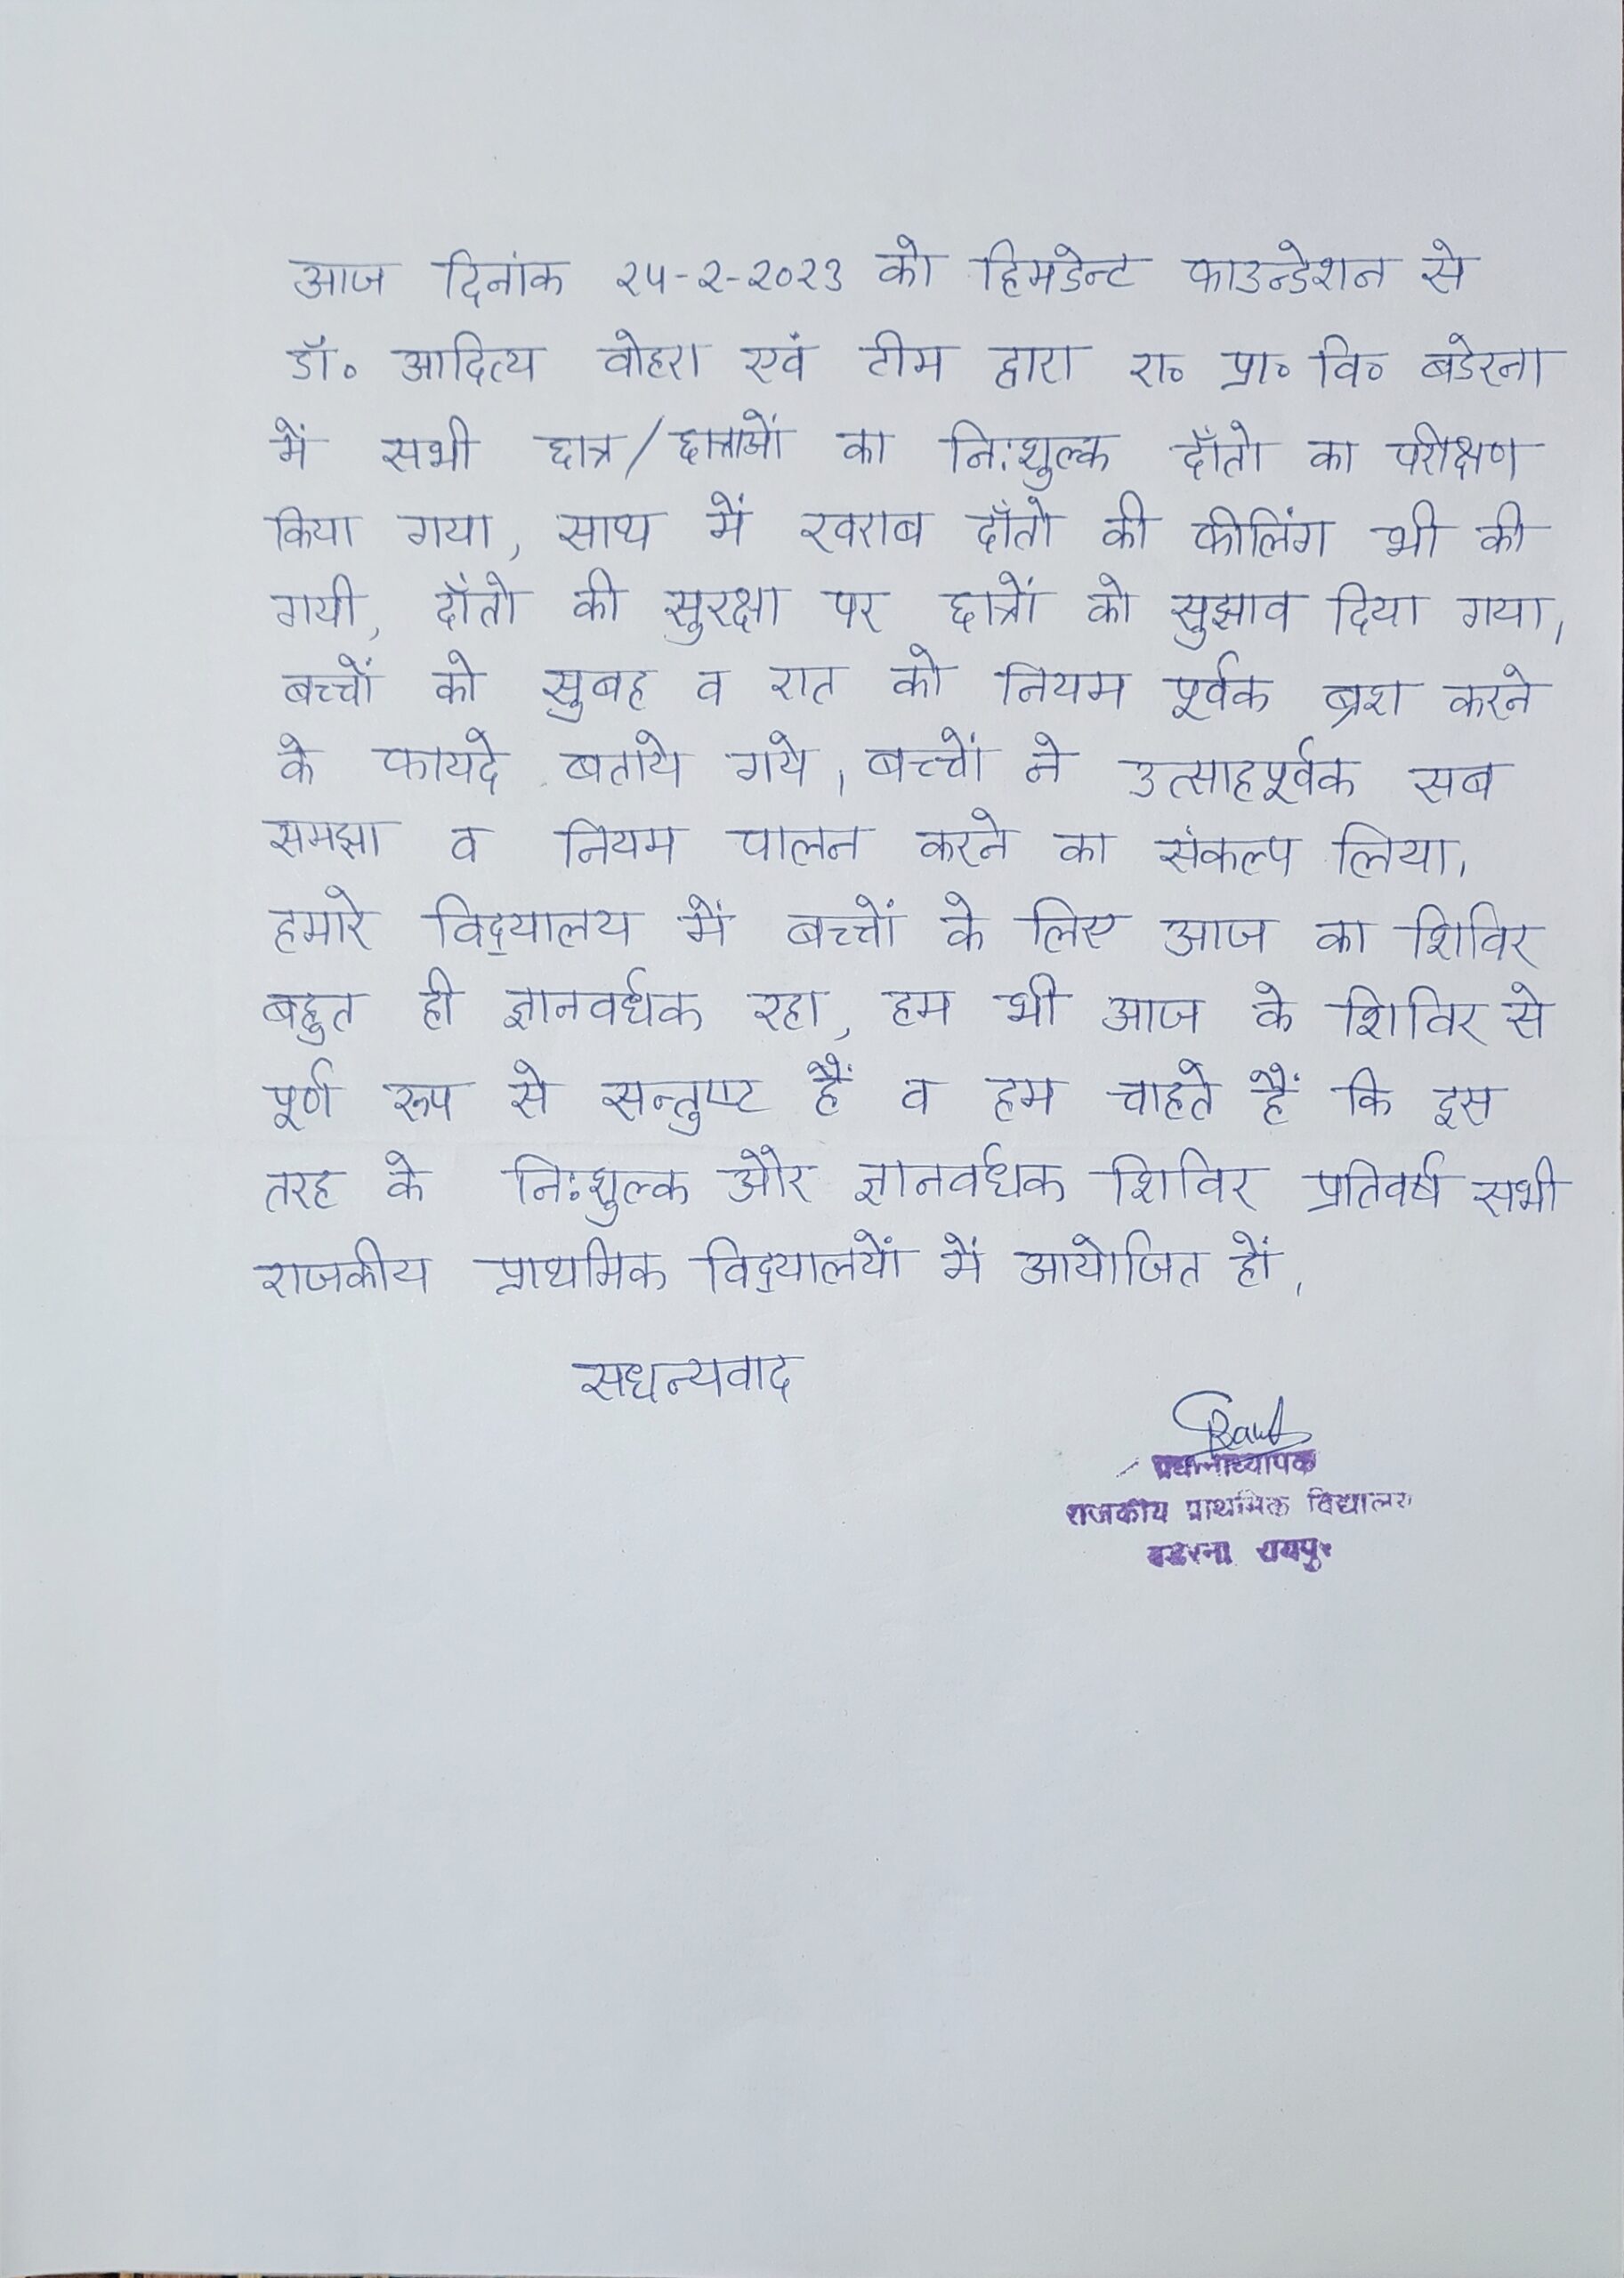 आज दिनांक २५-२-२०२३ को हिमडेन्ट फाउन्डेशन से
डॉ० आदित्य वोहरा एवं टीम द्वारा रा० प्रा० वि० बडेरना
में सभी छात्र/छात्राओं का नि:शुल्क दाँतो का परीक्षण
किया गया, साथ में खराब दाँतो की फीलिंग भी की
गयी, दाँतो की सुरक्षा पर छात्रों को सुझाव दिया गया,
बच्चों को सुबह व रात को नियम पूर्वक ब्रश करने
के फायदे बताये गये, बच्चों ने उत्साहपूर्वक सब
समझा व नियम पालन करने का संकल्प लिया,
हमारे विद्यालय में बच्चों के लिए आज का शिविर
बहुत ही ज्ञानवर्धक रहा, हम भी आज के शिविर से
पूर्ण रूप से सन्तुष्ट हैं व हम चाहते हैं कि इस
तरह के नि:शुल्क और ज्ञानवर्धक शिविर प्रतिवर्ष सभी
राजकीय प्राथमिक विद्यालयों में आयोजित हों,
सधन्यवाद
प्रधानाध्यापक
राजकीय प्राथमिक विद्यालय
बडेरना रायपुर